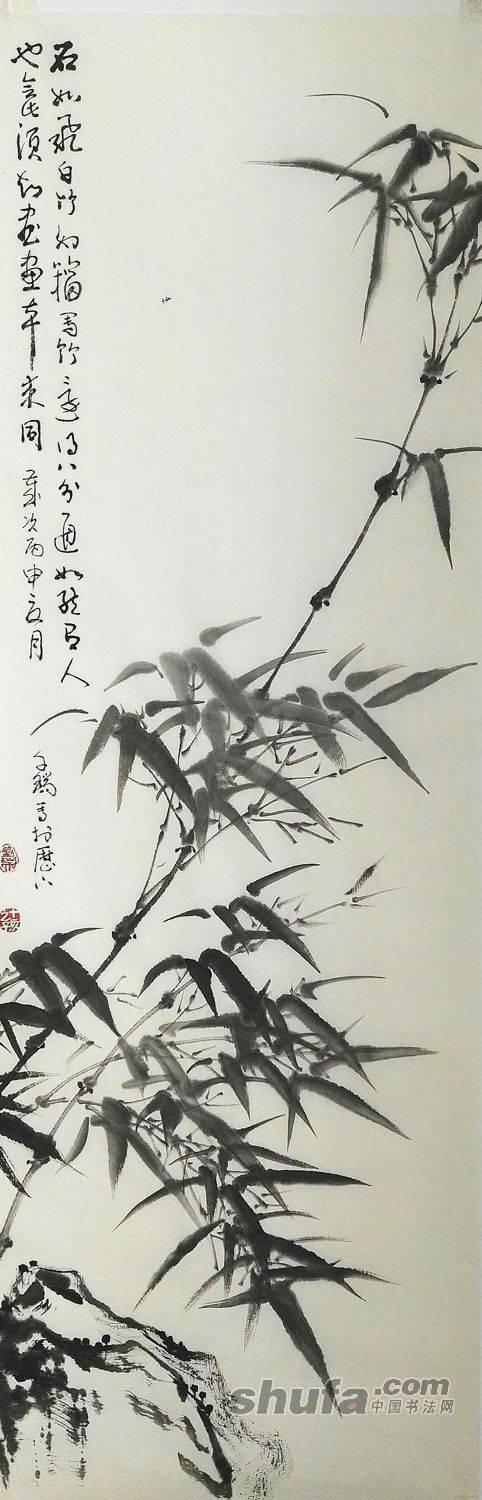 石如飛白竹如籀寫竹還得八分通如能有人
也會此須知書畫本來同 歲次丙申夏月
千鶴写於歷下
shufa.com
中国书法网